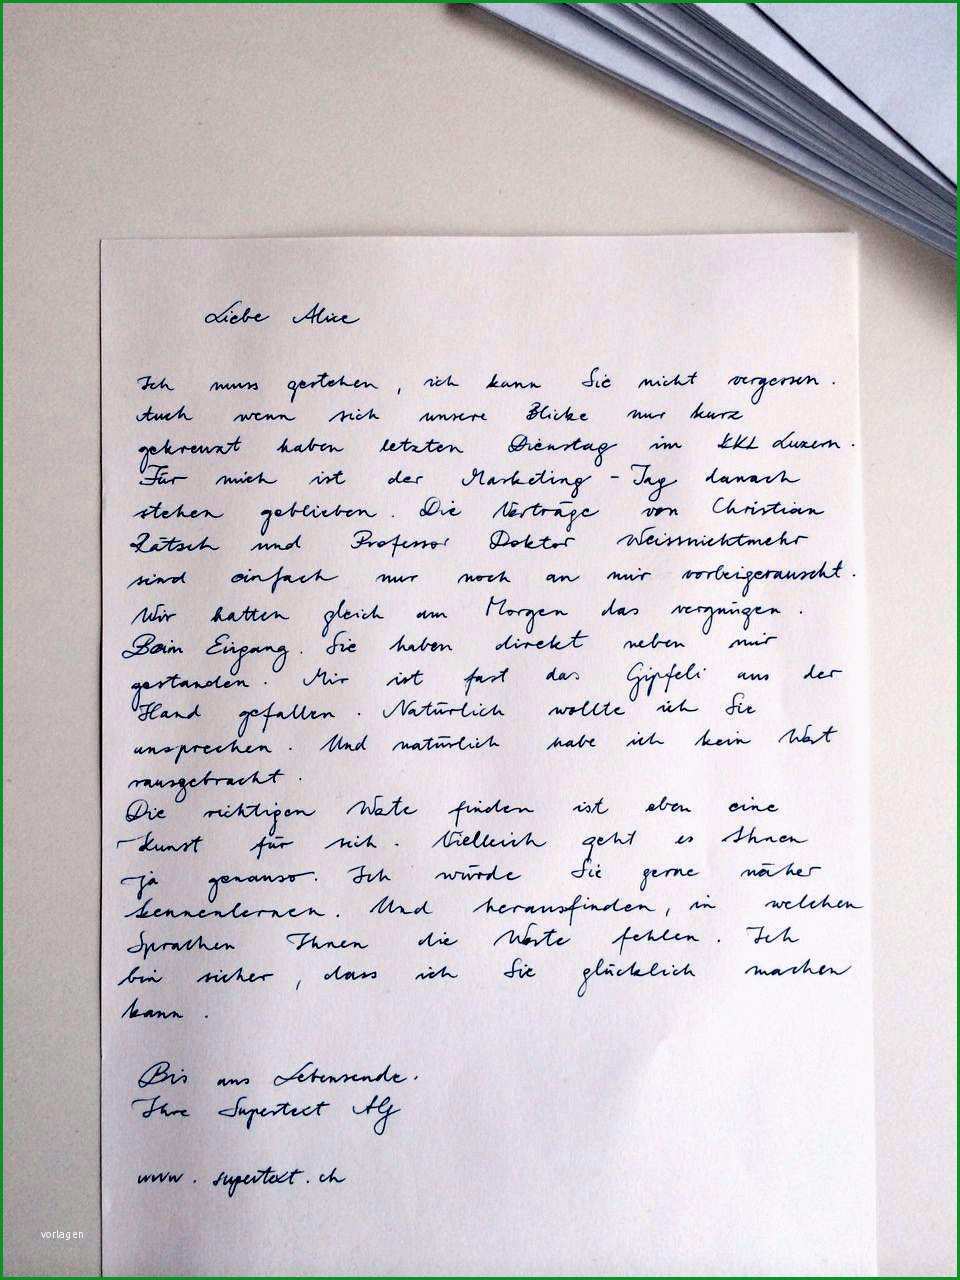 Liebe Alice
Ich muss gestehen, ich kann Sie nicht vergessen.
Auch wenn sich unsere Blicke nur kurz
gekreuzt haben letzten Dienstag im KKL Luzern.
Für mich ist der Marketing-Tag danach
stehen geblieben. Die Vorträge von Christian
Rätsch und Professor Doktor Weissnichtmehr
sind einfach nur noch an mir vorbeigerauscht.
Wir hatten gleich am Morgen das vergnügen.
Beim Eingang. Sie haben direkt neben mir
gestanden. Mir ist fast das Gipfeli aus der
Hand gefallen. Natürlich wollte ich Sie
ansprechen. Und natürlich habe ich kein Wort
rausgebracht.
Die richtigen Worte finden ist eben eine
Kunst für sich. Vielleich geht es Ihnen
ja genauso. Ich würde Sie gerne näher
kennenlernen. Und herausfinden, in welchen
Sprachen Ihnen die Worte fehlen. Ich
bin sicher, dass ich Sie glücklich machen
kann.
Bis ans Lebensende.
Ihre Supertext AG
www.supertext.ch
vorlagen